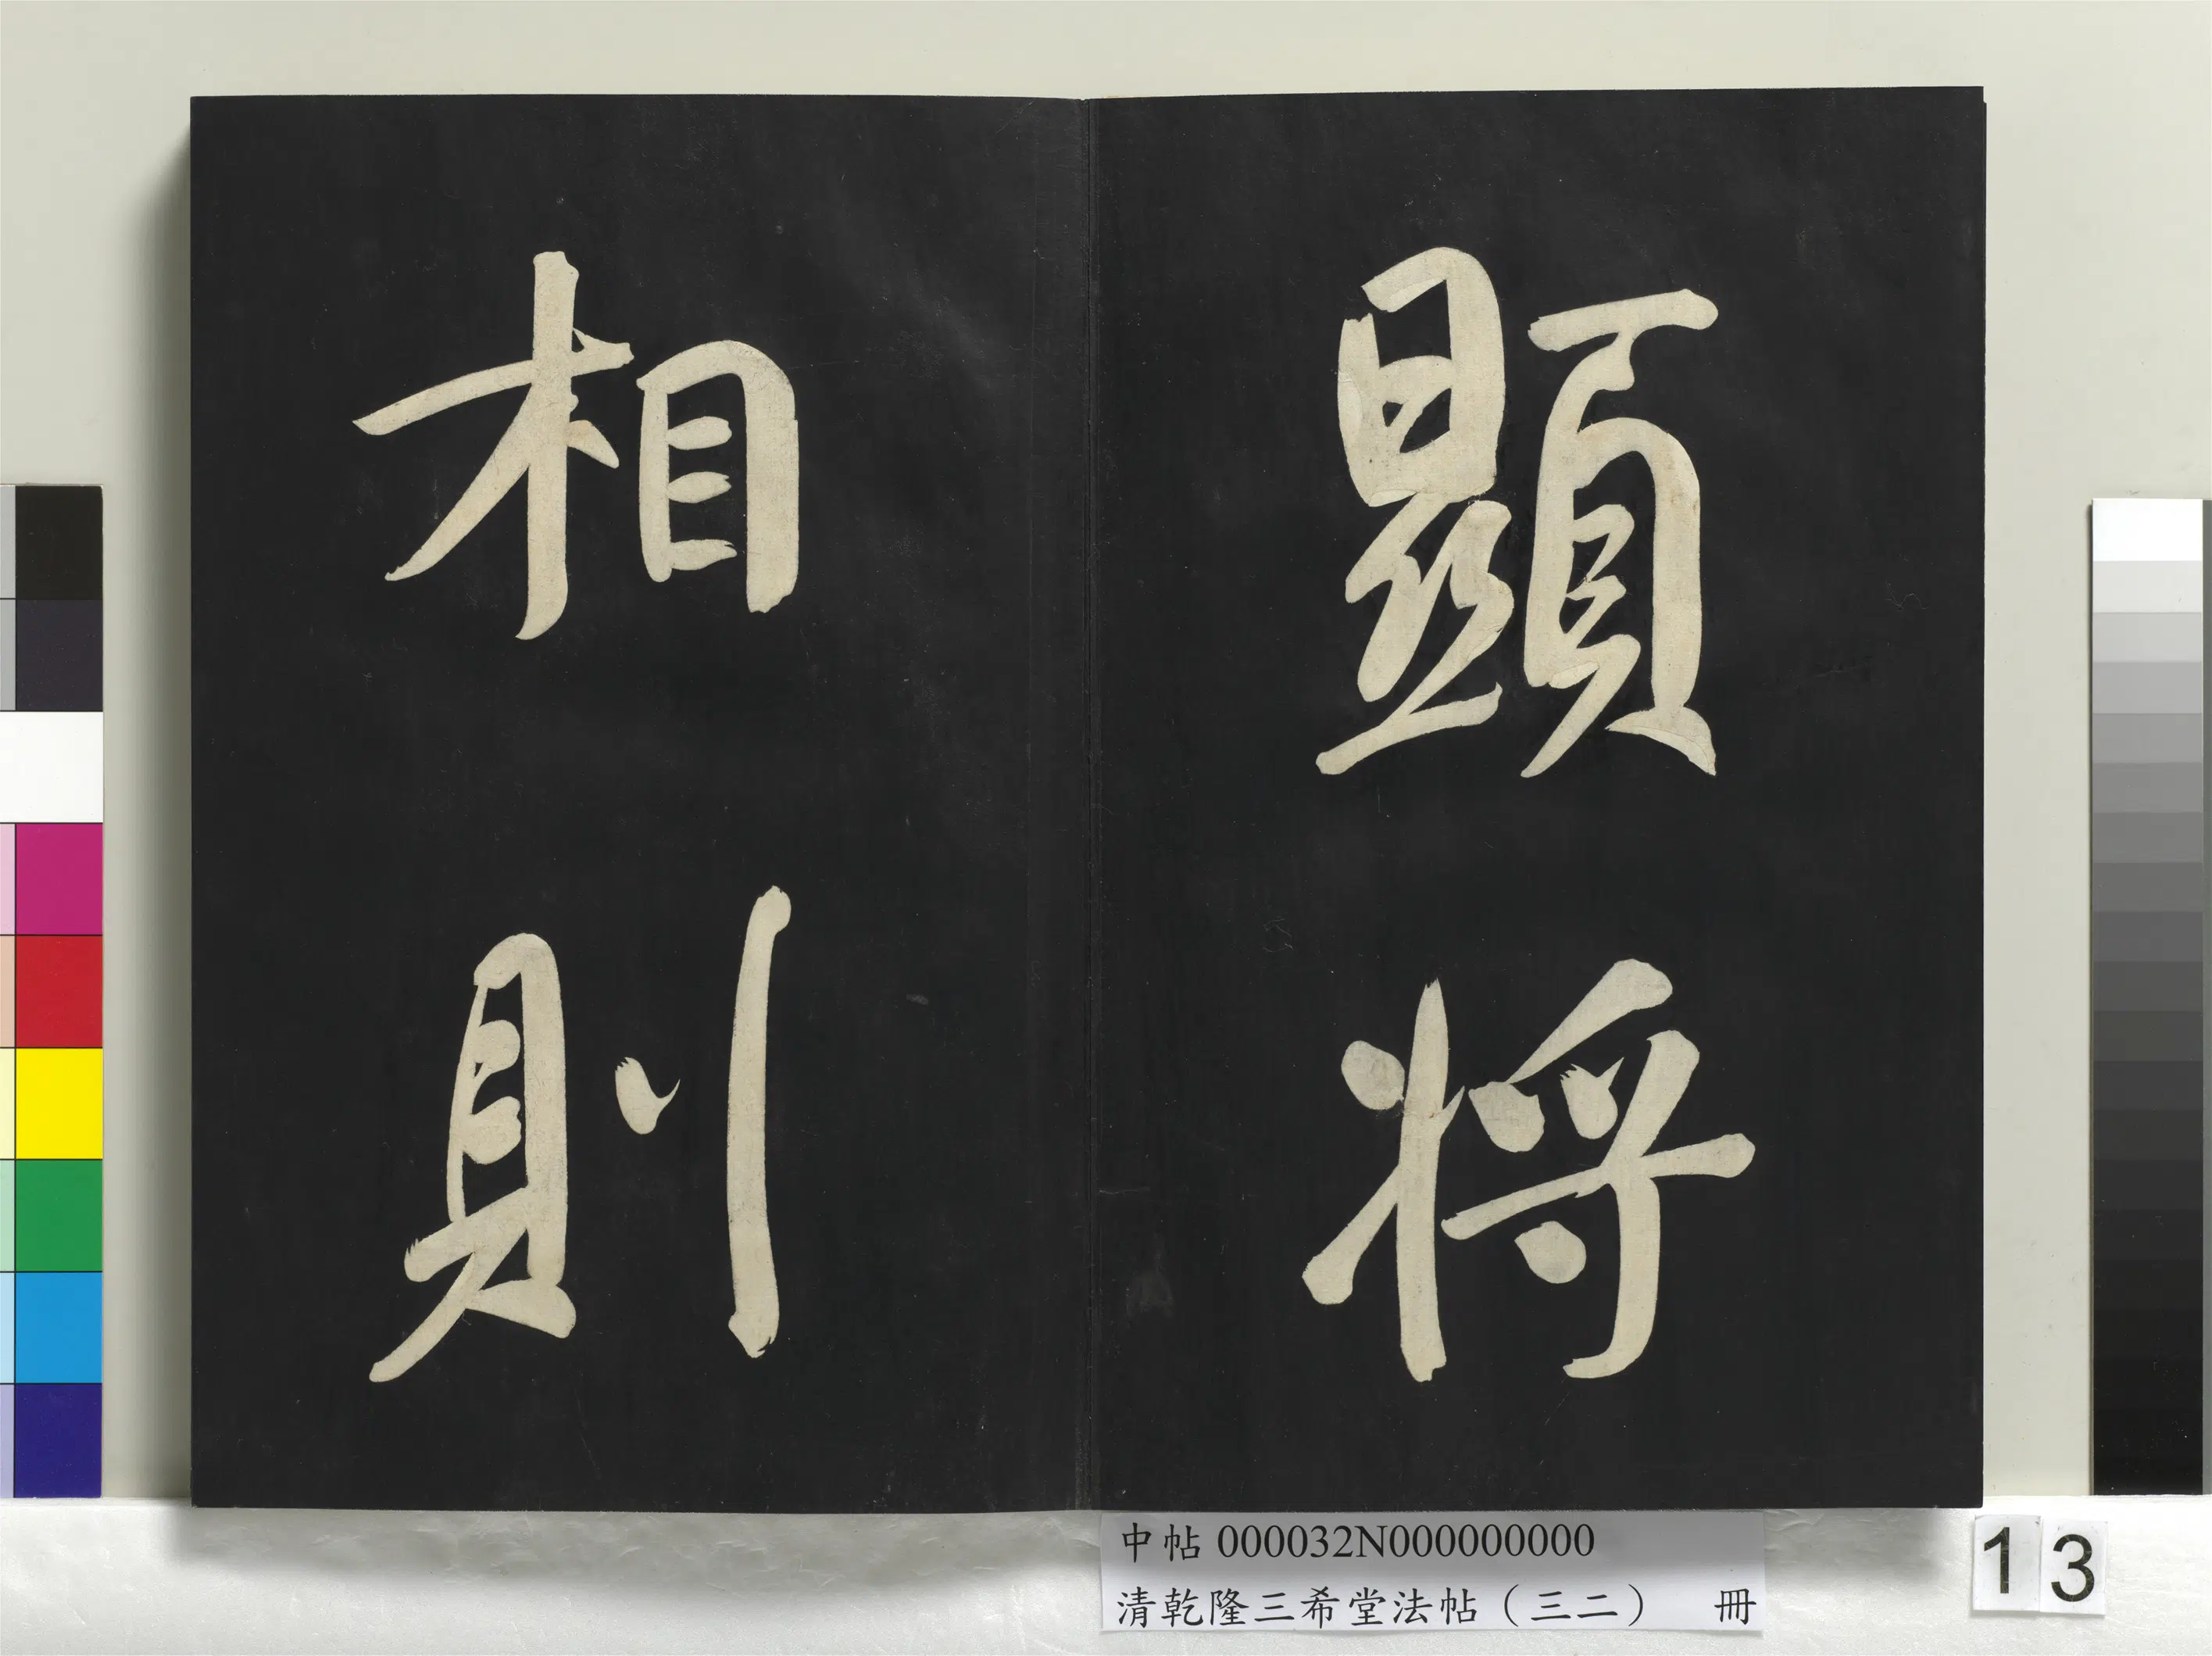 顯將
相則
中帖 000032N000000000
清乾隆三希堂法帖（三二） 冊
13